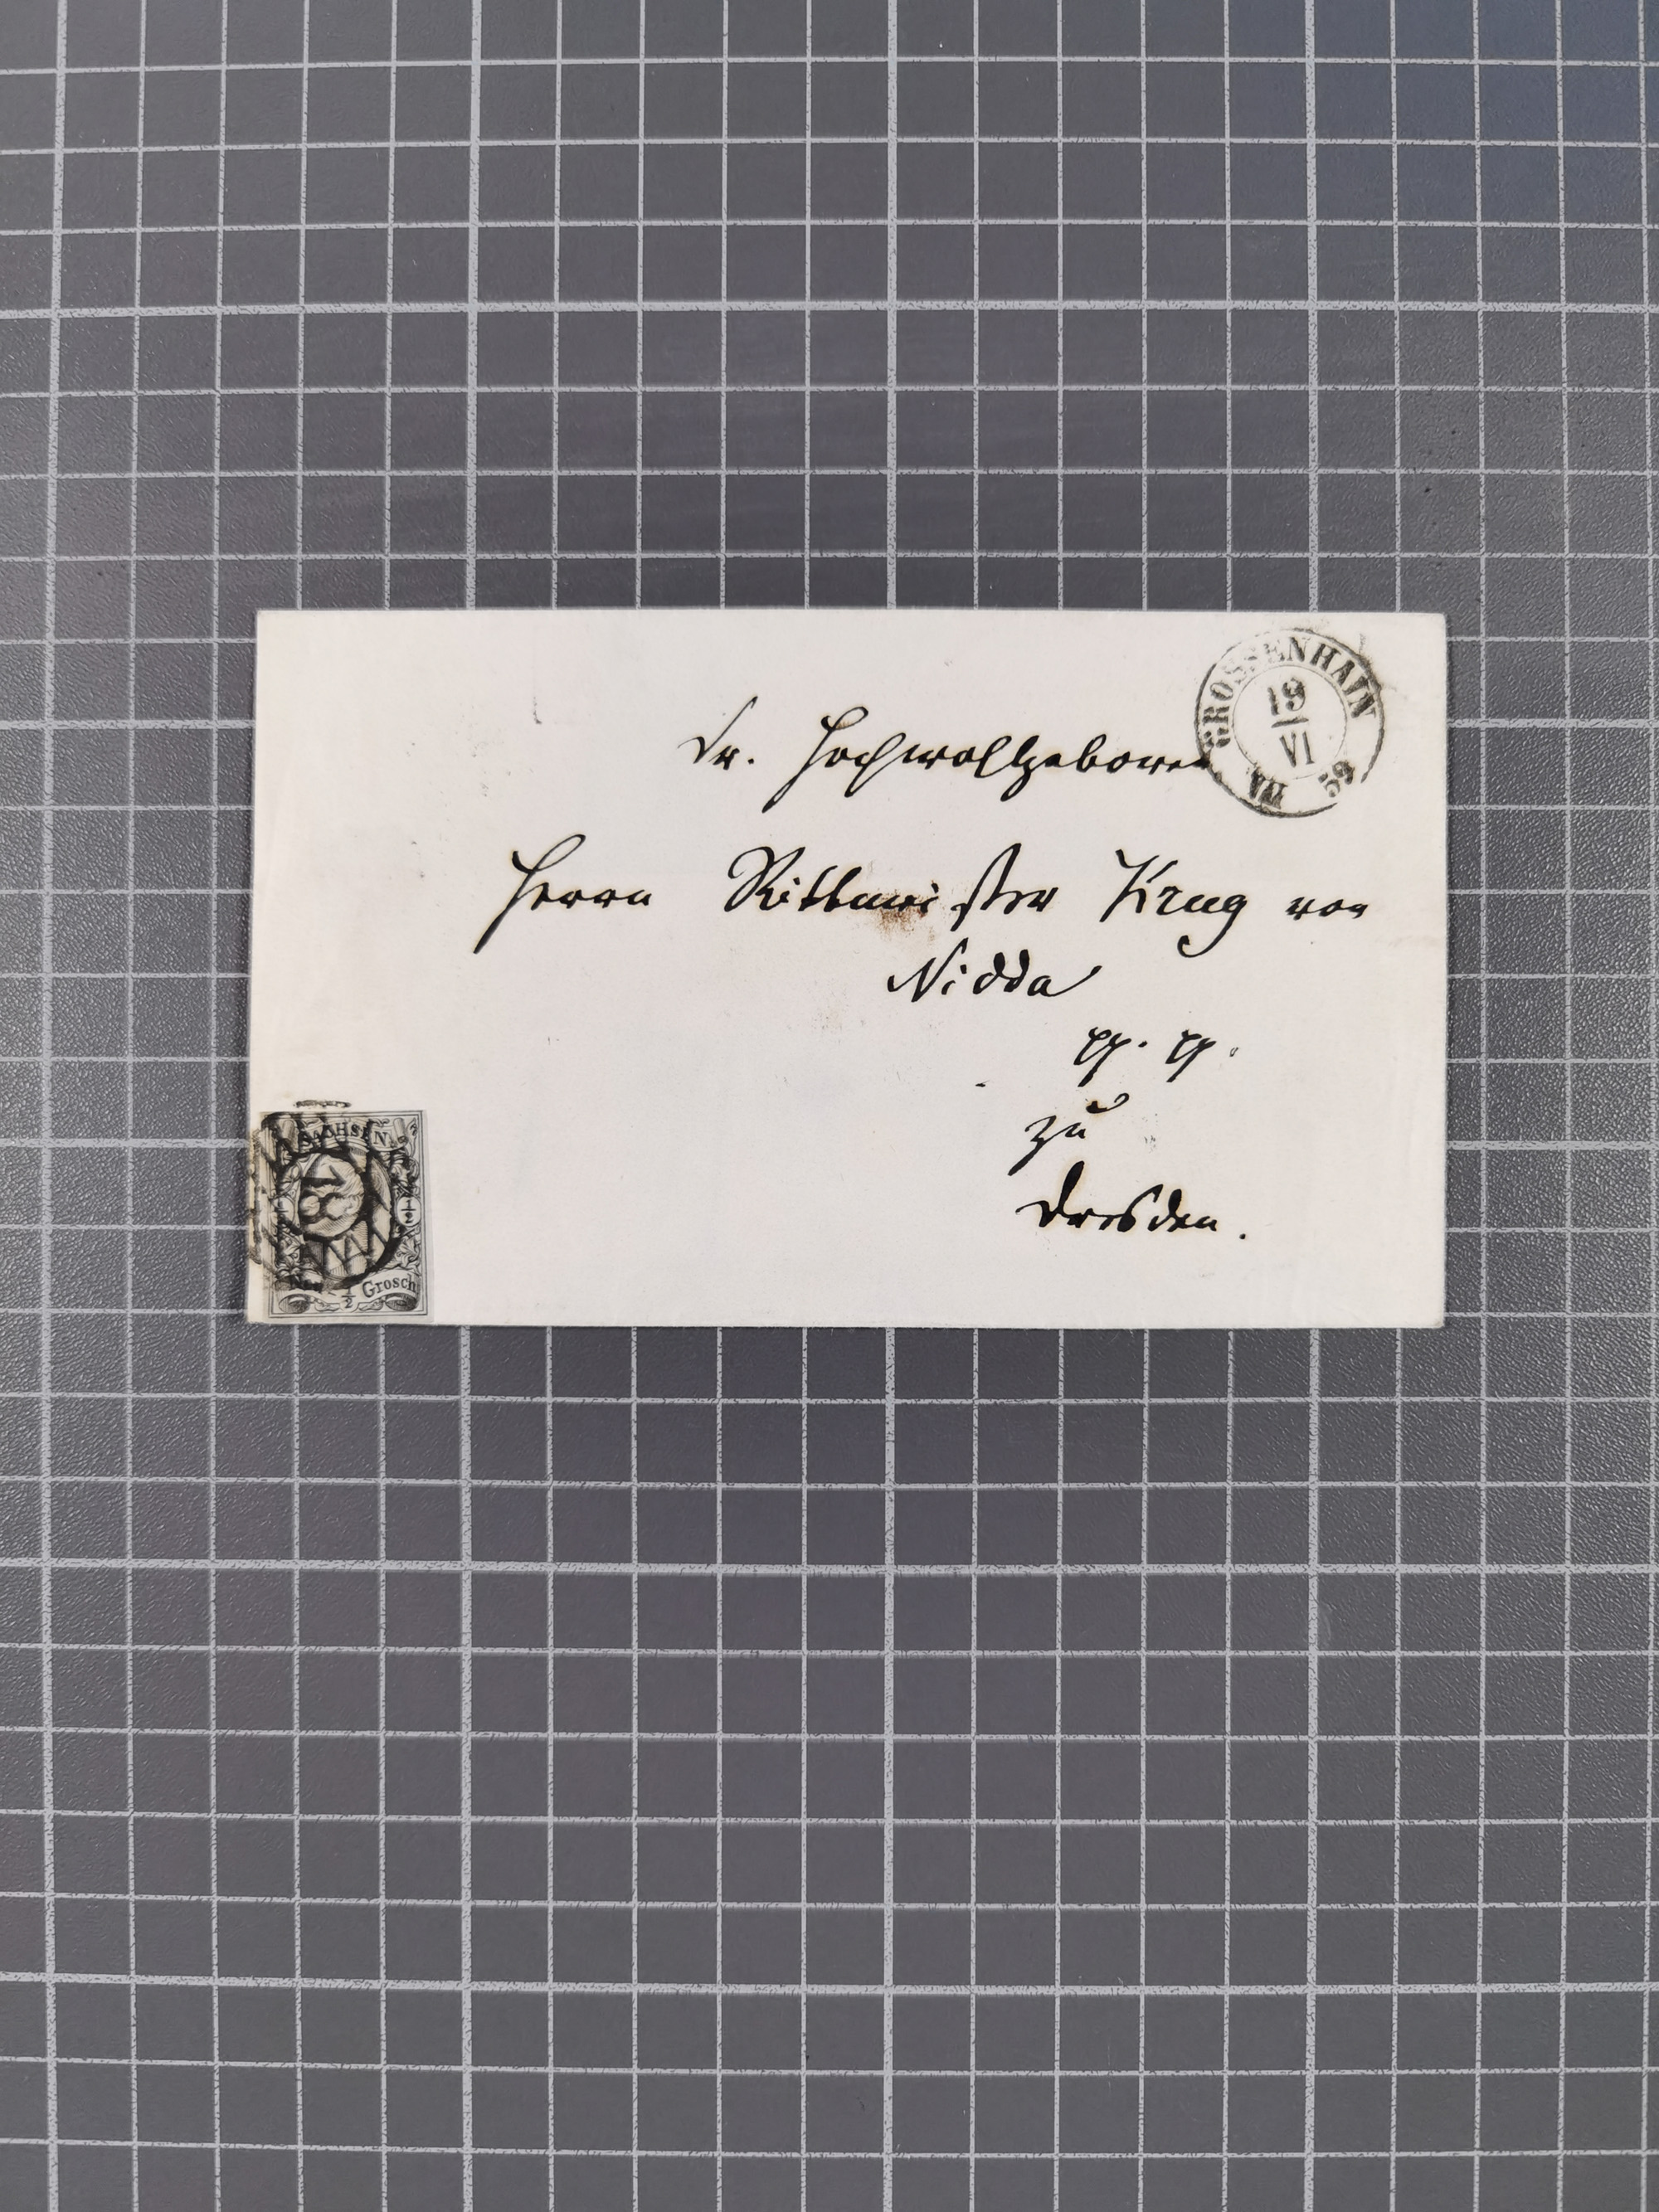 GROSSENHAIN
19
VI
59
Sr. Hochwohlgeboren
Herrn Rittmeister Krug von
Nidda
pp. pp.
zu
Dresden.
SACHSEN
½
Neu ½ Grosch